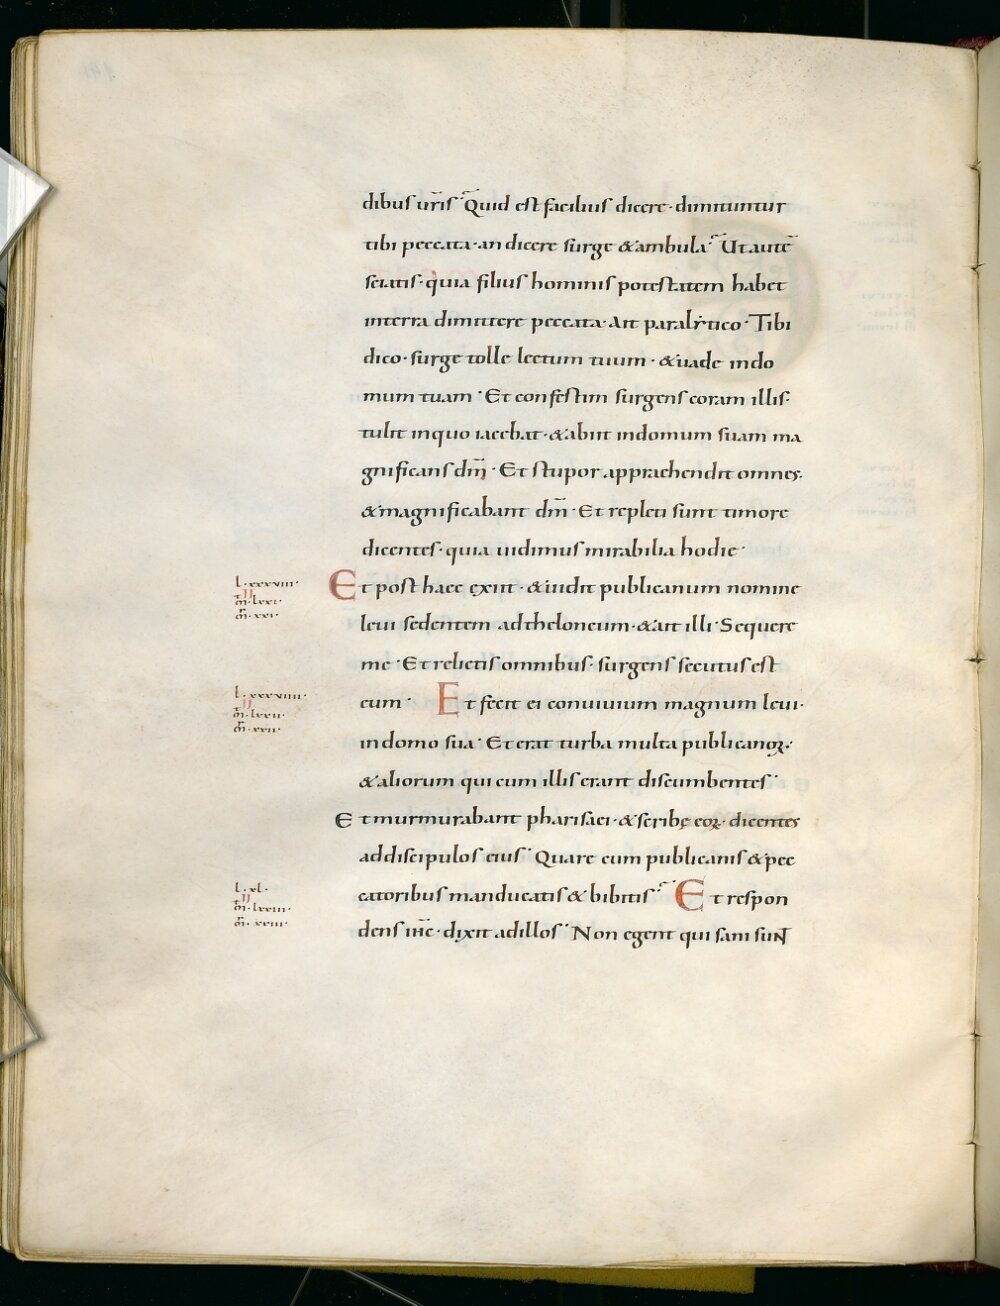 dibus ur̄is Quid est facilius dicere · dimittuntur
tibi peccata · an dicere surge & ambula Ut autē
sciatis · quia filius hominis potestatem habet
interra dimittere peccata · Ait paralẏtico · Tibi
dico · surge tolle lectum tuum · & uade indo
mum tuam · Et confestim surgens coram illis ·
tulit inquo iacebat · & abiit indomum suam ma
gnificans dm̄ · Et stupor apprachendit omnes ·
& magnificabant dm̄ · Et repleti sunt timore
dicentes · quia uidimus mirabilia hodie ·
l · xxxviii ·
II
m̄ · lxxi ·
m̄r · xxi ·
Et post haec exiit · & uidit publicanum nomine
leui sedentem adtheloneum · & ait illi · Sequere
me · Et relictis omnibus · surgens secutus est
l · xxxviiii ·
II
m̄ · lxxii ·
m̄r · xxii ·
eum · Et fecit ei conuiuium magnum leui ·
indomo sua · Et erat turba multa publicanoꝝ ·
& aliorum qui cum illis erant discumbentes ·
Et murmurabant pharisaei · & scribę eoꝝ · dicentes
addiscipulos eius · Quare cum publicanis & pec
l · xl ·
II
m̄ · lxxiii ·
m̄r · xxiii ·
catoribus manducatis & bibitis Et respon
dens ih̄c · dixit adillos · Non egent qui sani sunt